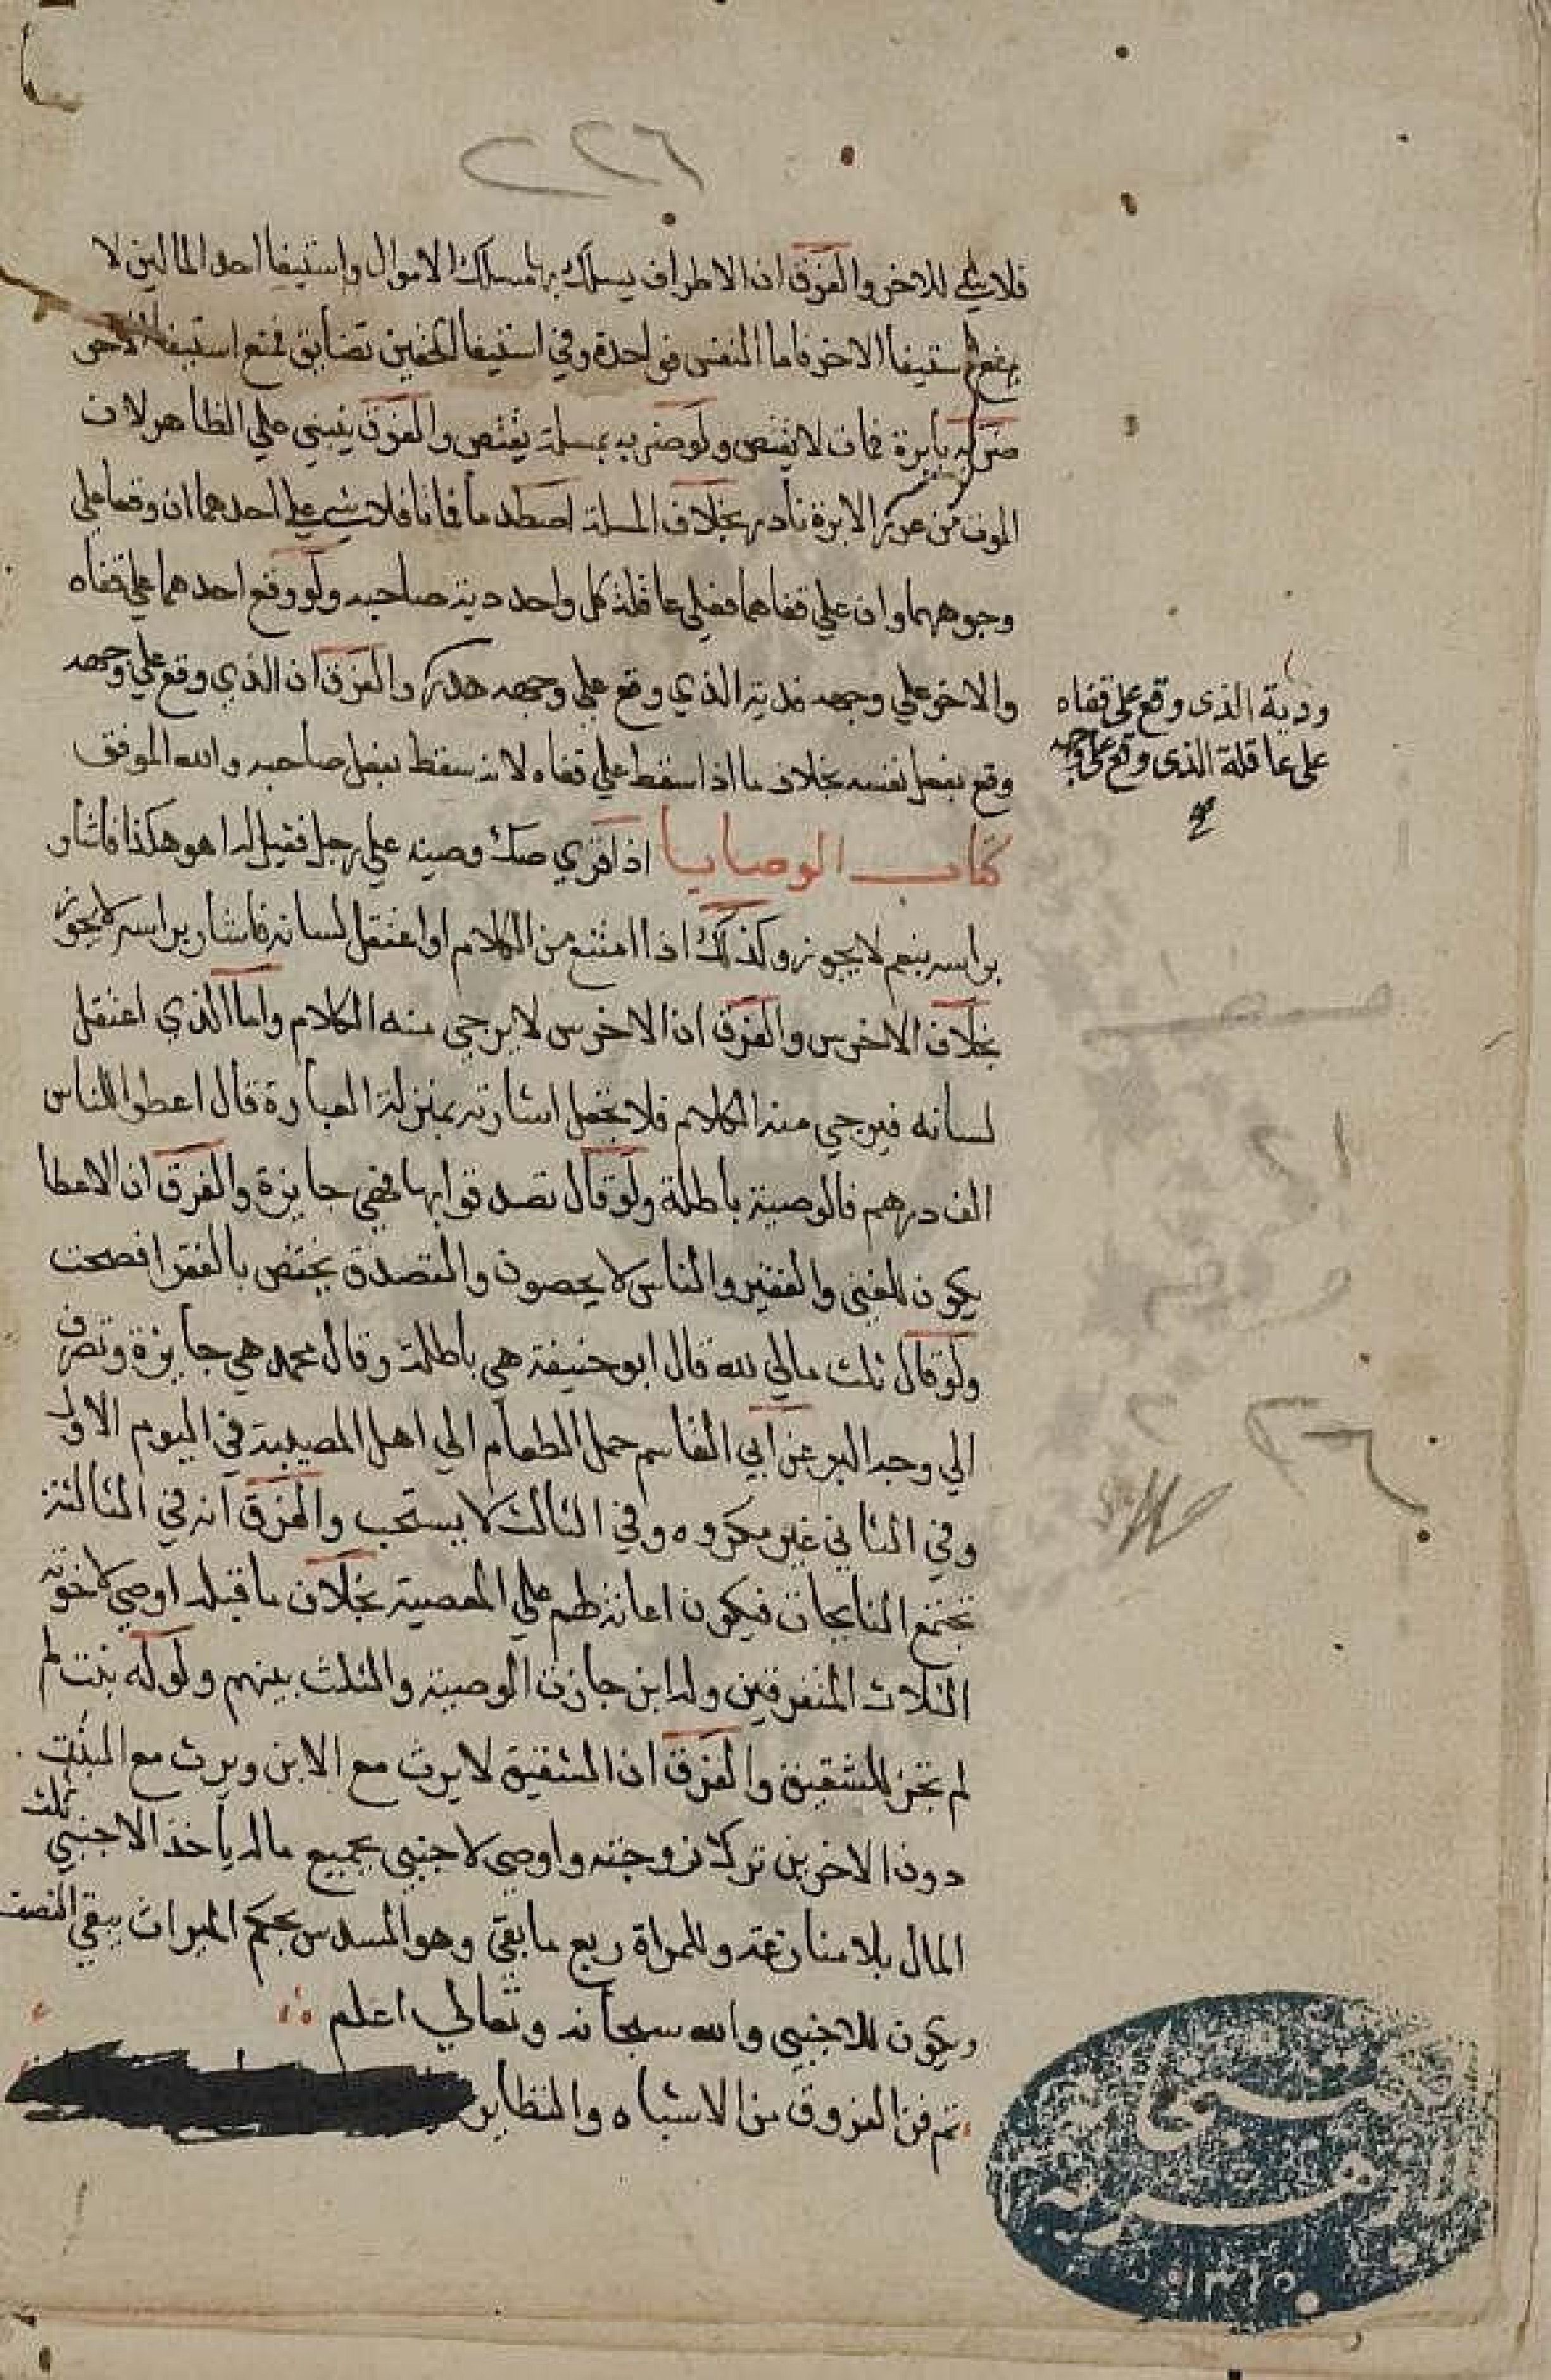 ٢٢٦
فلا شي للاخر والفرق ان الاطراف يسلك بها مسلك الاموال واستيفا احد المالين لا
يمنع استيفا الاخر فاما النفس فواحدة وفي استيفا الحقين تضايق فمنع استيفا الاخر
ضربه بابرة فمات لا يقتص ولو ضربه بمسلة يقتص والفرق يبنى علي الظاهر لان
الموت من غرز الابرة نادر بخلاف المسلة اصطدما فماتا فلا شي علي احدهما ان وقعا علي
وجوههما وان علي قفاهما فعلي عاقلة كل واحد دية صاحبه ولو وقع احدهما علي قفاه
والاخر علي وجهه فدية الذي وقع علي وجهه هدر والفرق ان الذي وقع علي وجهه
ودية الذى وقع على قفاه
على عاقلة الذى وقع على وجهه
وقع بفعل نفسه بخلاف ما اذا سقط علي قفاه لانه سقط بفعل صاحبه والله الموفق
كتاب الوصايا اذا قري صك وصيه علي رجل فقيل له اهو هكذا فاشار
براسه بنعم لا يجوز وكذلك اذا امتنع من الكلام او اعتقل لسانه فاشار براسه لا يجوز
بخلاف الاخرس والفرق ان الاخرس لا يرجي منه الكلام واما الذي اعتقل
لسانه فيرجي منه الكلام فلا تجعل اشارته بمنزلة العبارة قال اعطوا للناس
الف درهم فالوصية باطلة ولو قال تصدقوا بها فهي جايزة والفرق ان الاعطا
يكون للغني والفقير والناس لا يحصون والتصدق يختص بالفقرا فصحت
ولو قال ثلث مالي لله قال ابو حنيفة هي باطلة وقال محمد هي جايزة وتصرف
الي وجه البر عن ابي القاسم حمل الطعام الي اهل المصيبة في اليوم الاول
وفي الثاني غير مكروه وفي الثالث لا يستحب والفرق انه في الثالثة
تجتمع النايحات فيكون اعانة لهم علي المعصية بخلاف ما قبله اوصي لاخوته
الثلاث المتفرقين وله ابن جازت الوصية والثلث بينهم ولو له بنت لم
لم تجز للشقيق والفرق ان الشقيق لا يرث مع الابن ويرث مع البنت
دون الاخرين ترك زوجته واوصي لاجنبي بجميع ماله ياخذ الاجنبي ثلث
المال بلا منازعة وللمراة ربع ما بقي وهو السدس بحكم الميراث يبقي النصف
ويكون للاجنبي والله سبحانه وتعالي اعلم
تم فن الفروق من الاشباه والنظاير